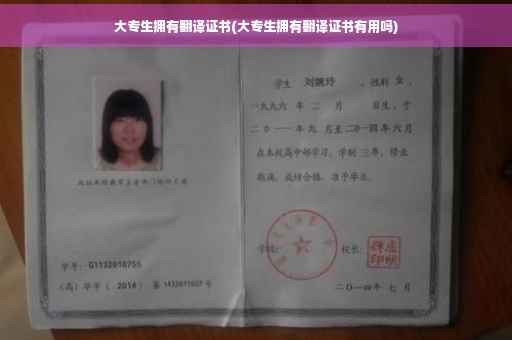 大专生拥有翻译证书(大专生拥有翻译证书有用吗)
学生 刘婉玲 ,性别 女 ,
一九九六 年 二 月 日生,于
二〇一一 年 九 月至 二〇一四 年 六 月
在本校高中部学习,学制 三 年,修业
期满,成绩合格,准予毕业。
学校:
校长:
学号: G1132010755
(高)毕字( 2014 )第 1432011027 号
二〇一四年 七 月